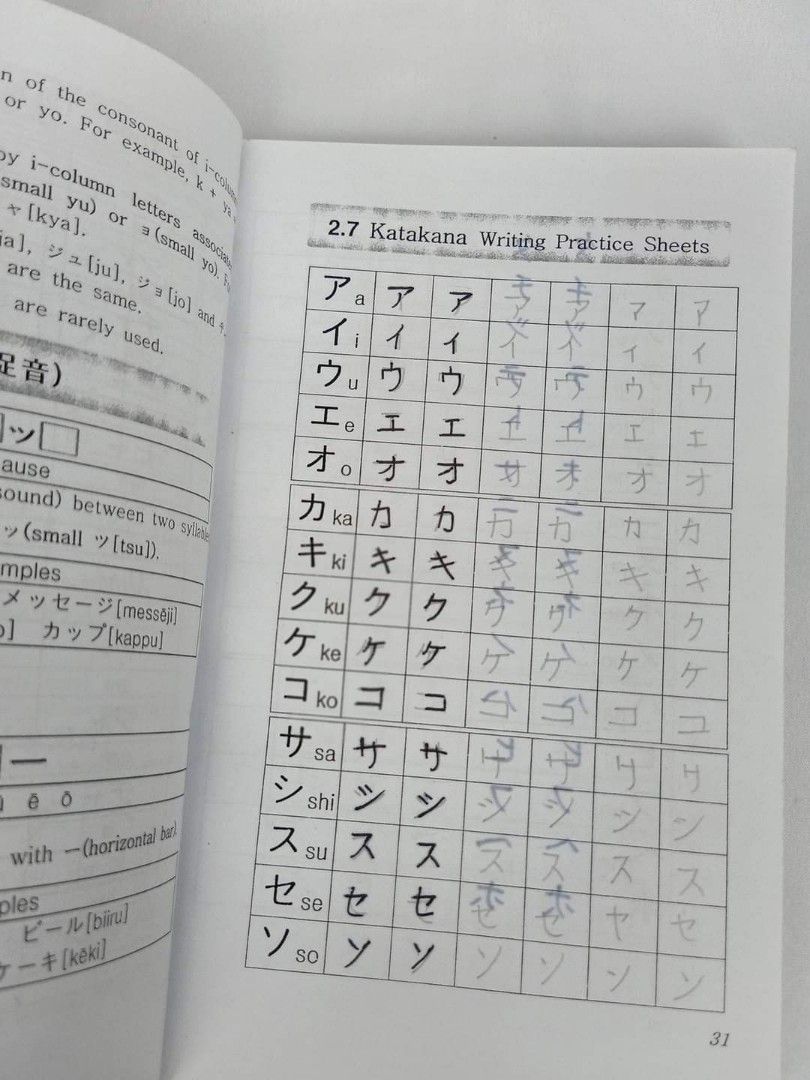 n of the consonant of i-colu
or yo. For example, k + ya
by i-column letters associate
small yu) or ョ(small yo). F
ャ[kya].
ja], ジュ[ju], ジョ[jo] and チ
are the same.
are rarely used.
促音)
ッ
ause
sound) between two syllable
ッ(small ッ[tsu]).
mples
メッセージ[messēji]
カップ[kappu]
ー
ē ō
with ー(horizontal bar)
ples
ビール[biiru]
ケーキ[kēki]
2.7 Katakana Writing Practice Sheets
ア a ア ア ア ア ア ア
イ i イ イ イ イ イ イ
ウ u ウ ウ ウ ウ ウ ウ
エ e エ エ エ エ エ エ
オ o オ オ オ オ オ オ
カ ka カ カ カ カ カ カ
キ ki キ キ キ キ キ キ
ク ku ク ク ク ク ク ク
ケ ke ケ ケ ケ ケ ケ ケ
コ ko コ コ コ コ コ コ
サ sa サ サ サ サ サ サ
シ shi シ シ シ シ シ シ
ス su ス ス ス ス ス ス
セ se セ セ セ セ セ セ
ソ so ソ ソ ソ ソ ソ ソ
31